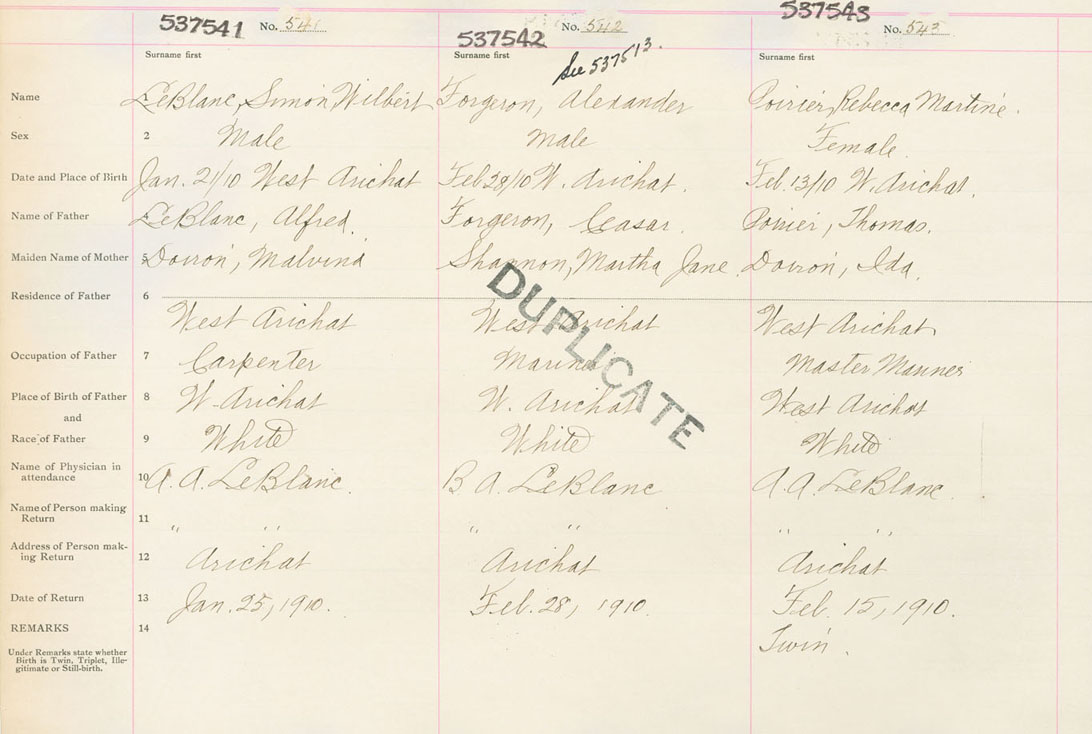 537541 No. 541 537542 No. 542 537543 No. 543
See 537513.
Surname first Surname first Surname first
Name LeBlanc, Simon Wilbert Forgeron, Alexander Poirier, Rebecca Martine.
Sex 2 Male Male Female.
Date and Place of Birth Jan. 21/10 West Arichat Feb 28/10 W. Arichat. Feb. 13/10 W. Arichat.
Name of Father LeBlanc, Alfred. Forgeron, Ceasar. Poirier, Thomas.
Maiden Name of Mother 5 Doiron, Malvina Shannon, Martha Jane Doiron, Ida.
Residence of Father 6
West Arichat West Arichat West Arichat
Occupation of Father 7 Carpenter Mariner Master Mariner
Place of Birth of Father 8 W. Arichat W. Arichat West Arichat
and
Race of Father 9 White White White
Name of Physician in
attendance 10 A. A. LeBlanc. B A. LeBlanc A. A. LeBlanc.
Name of Person making
Return 11 " " " " " "
Address of Person mak-
ing Return 12 Arichat Arichat Arichat
Date of Return 13 Jan. 25, 1910. Feb. 28, 1910. Feb. 15, 1910.
REMARKS 14 Twin.
Under Remarks state whether
Birth is Twin, Triplet, Ille-
gitimate or Still-birth.
DUPLICATE